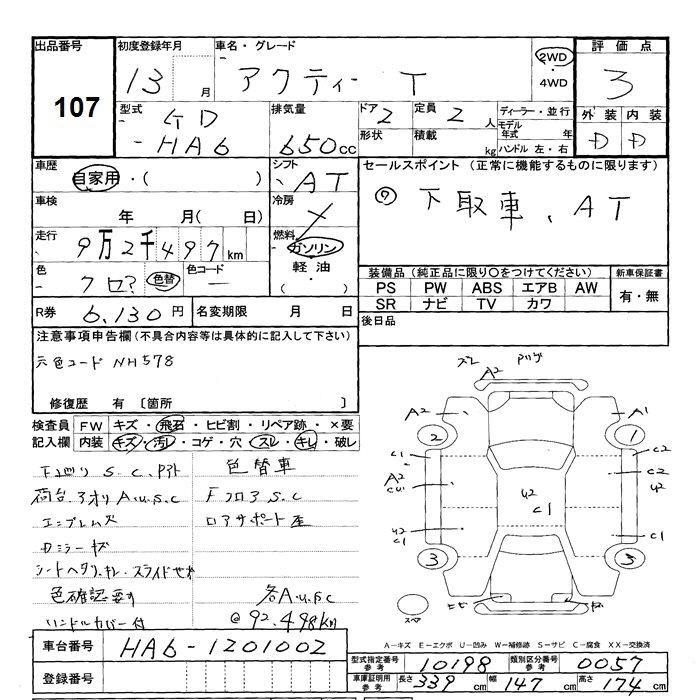 出品番号 初度登録年月 車名・グレード 評価点
107 13 月 アクティー T 2WD ・ 4WD 3
型式 排気量 ドア 2 定員 2 人 ディーラー・並行 外装 内装
GD - HA6 650 cc 形状 積載 kg モデル年式 年 ハンドル 左・右 D D
車歴 シフト セールスポイント (正常に機能するものに限ります)
自家用・( ) AT 下取車、AT
車検 年 月( 日) 冷房
走行 9万2千497 km 燃料 ガソリン
色 クロ? 色替 色コード 軽油 ・( )
装備品(純正品に限り〇をつけてください) 新車保証書
PS PW ABS エアB AW 有・無
SR ナビ TV カワ
R券 6,130 円 名変期限 月 日 後日品
注意事項申告欄(不具合内容等は具体的に記入して下さい)
元色コード NH578
修復歴 有 〔箇所 〕
検査員記入欄 FW キズ・飛石・ヒビ割・リペア跡・×要
内装 キズ・汚レ・コゲ・穴・スレ・キレ・破レ
S.C. 色替車
荷台、アオリ A.U.S.C Fフロア S.C
エンブレム欠 ロアサポート
Dミラーキズ
色確認 各A.U.S.C
ハンドルカバー付 @92,498km
A2 A2 A1
2 1
C1 C2
A2 U2 U2
C1
U2 C1 C1
3
A-キズ E-エクボ U-凹み W-補修跡 S-サビ C-腐食 XX-交換済
車台番号 HA6-1201002
型式指定番号 参考 10198 類別区分番号 参考 0057
登録番号 車庫証明用 参考 長さ 339 cm 幅 147 cm 高さ 174 cm